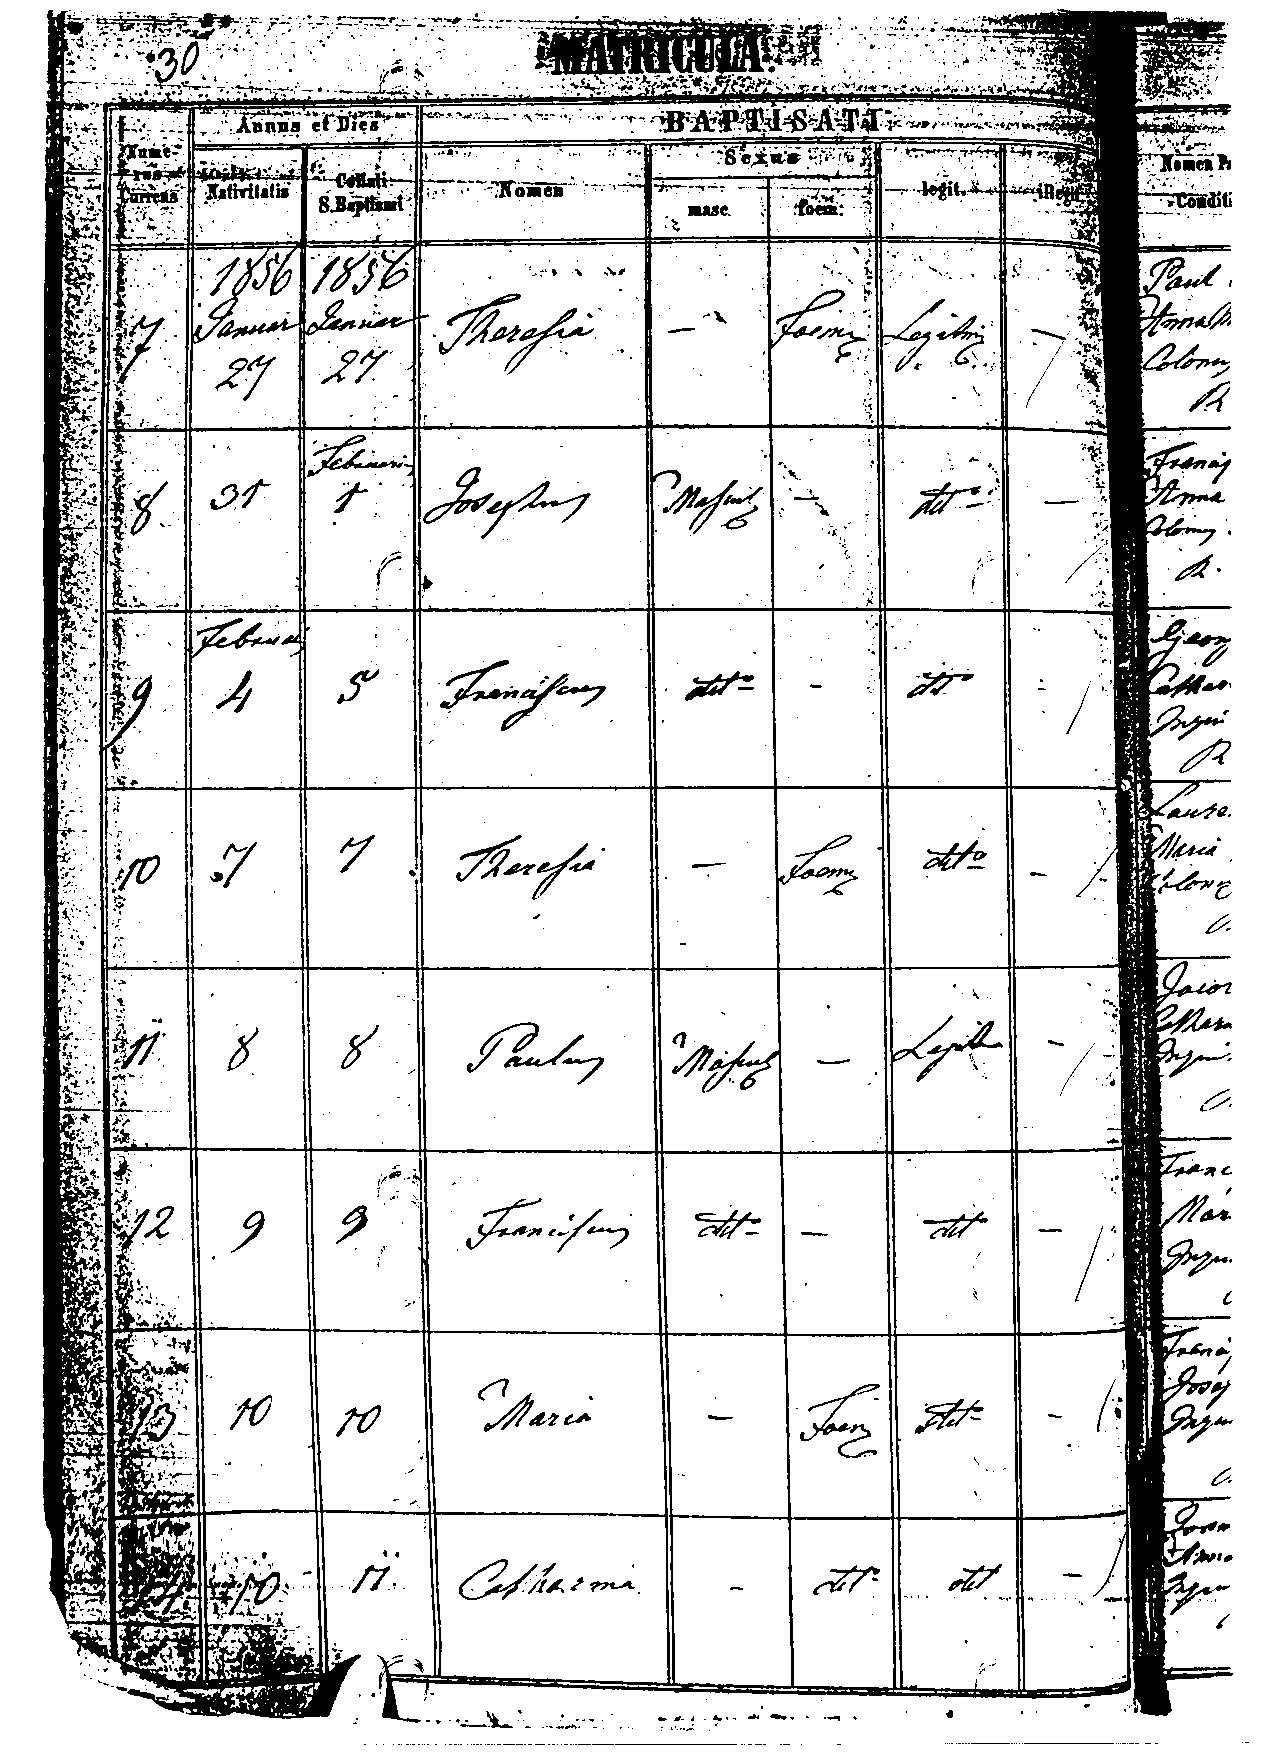 30
MATRICULA
Numerus Currens
Annus et Dies
Nativitatis
Collati S. Baptismi
BAPTISATI
Nomen
Sexus
masc.
foem.
legit.
illegit
Nomen Pa
Conditi
7
1856 Januar 27
1856 Januar 27
Theresia
—
Foem
Legitim
—
Paul
Anna M
Colony
R
8
31
Februarii 1
Josephus
Mascul
—
ditto
—
Francis
Anna
Colony
R.
9
Februar 4
5
Franciscus
ditto
-
ditto
-
Georg
Cathar
Inqui
R
10
7
7
Theresia
—
Foem
ditto
-
Laure
Maria
Colony
11
8
8
Paulus
Mascul
—
Legitim
-
Cathari
Inqui
12
9
9
Franciscus
ditto
—
ditto
—
Franc
Mar
Inqu
13
10
10
Maria
—
Foem
ditto
-
Franc
Josep
Inqui
14
10
11
Catharina
-
ditto
ditt
-
Anna
Inqui